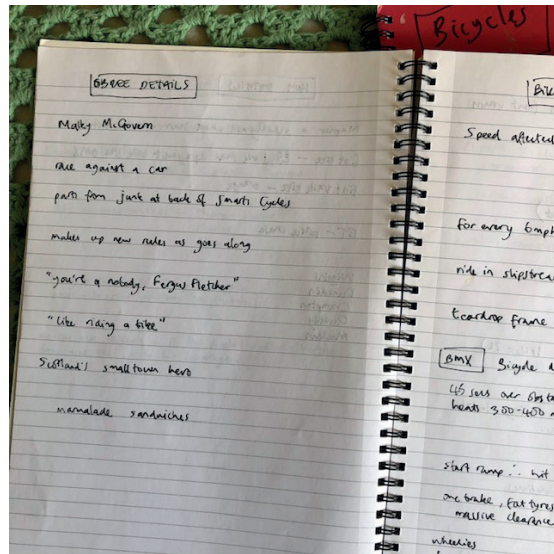 Bicycles
OBREE DETAILS
Malky McGovern
race against a car
parts from junk at back of Smarts Cycles
makes up new rules as goes along
"you're a nobody, Fergus Fletcher"
"like riding a bike"
Scotland's small town hero
marmalade sandwiches
Speed affected
for every 6mph
ride in slipstrea
teardrop frame
BMX Bicycle
45 secs over obsta
heats 300-400 m
start ramp ∴ hit
one brake, fat tyres
massive clearance
wheelies